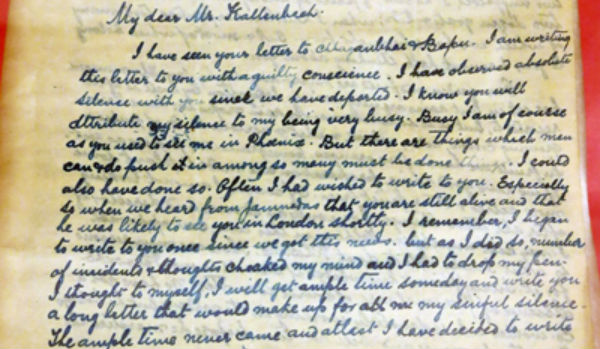 My dear Mr. Kallenbach.
I have seen your letter to chhaganbhai & Bapu. I am writing
this letter to you with a guilty conscience. I have observed absolute
silence with you since we have departed. I know you will
attribute my silence to my being very busy. Busy I am of course
as you used to see me in Phoenix. But there are things which men
can & do push in among so many must be done things. I could
also have done so. Often I had wished to write to you. Especially
so when we heard from Jamnadas that you are still alive and that
he was likely to see you in London shortly. I remember, I began
to write to you once since we got this news. but as I did so, number
of incidents & thoughts choaked my mind and I had to drop my pen.
I thought to myself, I will get ample time someday and write you
a long letter that would make up for all my sinful silence.
The ample time never came and atlest I have decided to write